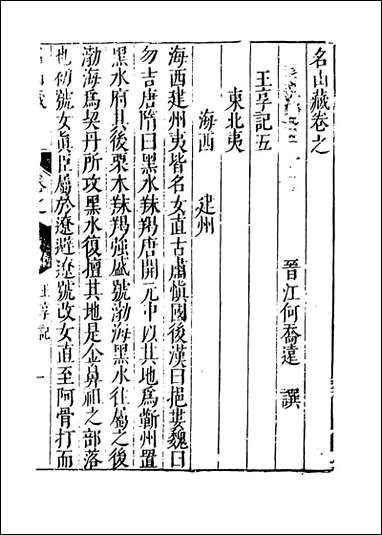 名山藏卷之
晉江何喬遠 譔
王享記五
東北夷
海西 建州
海西建州夷皆名女直古肅慎國後漢曰挹婁魏曰
勿吉唐隋曰黑水靺鞨唐開元中以其地爲靳州置
黑水府其後粟末靺鞨強盛號渤海黑水往屬之後
渤海爲契丹所攻黑水復擅其地是金鼻祖之部落
也初號女眞臣屬於遼避遼號改女直至阿骨打而
王享記 一